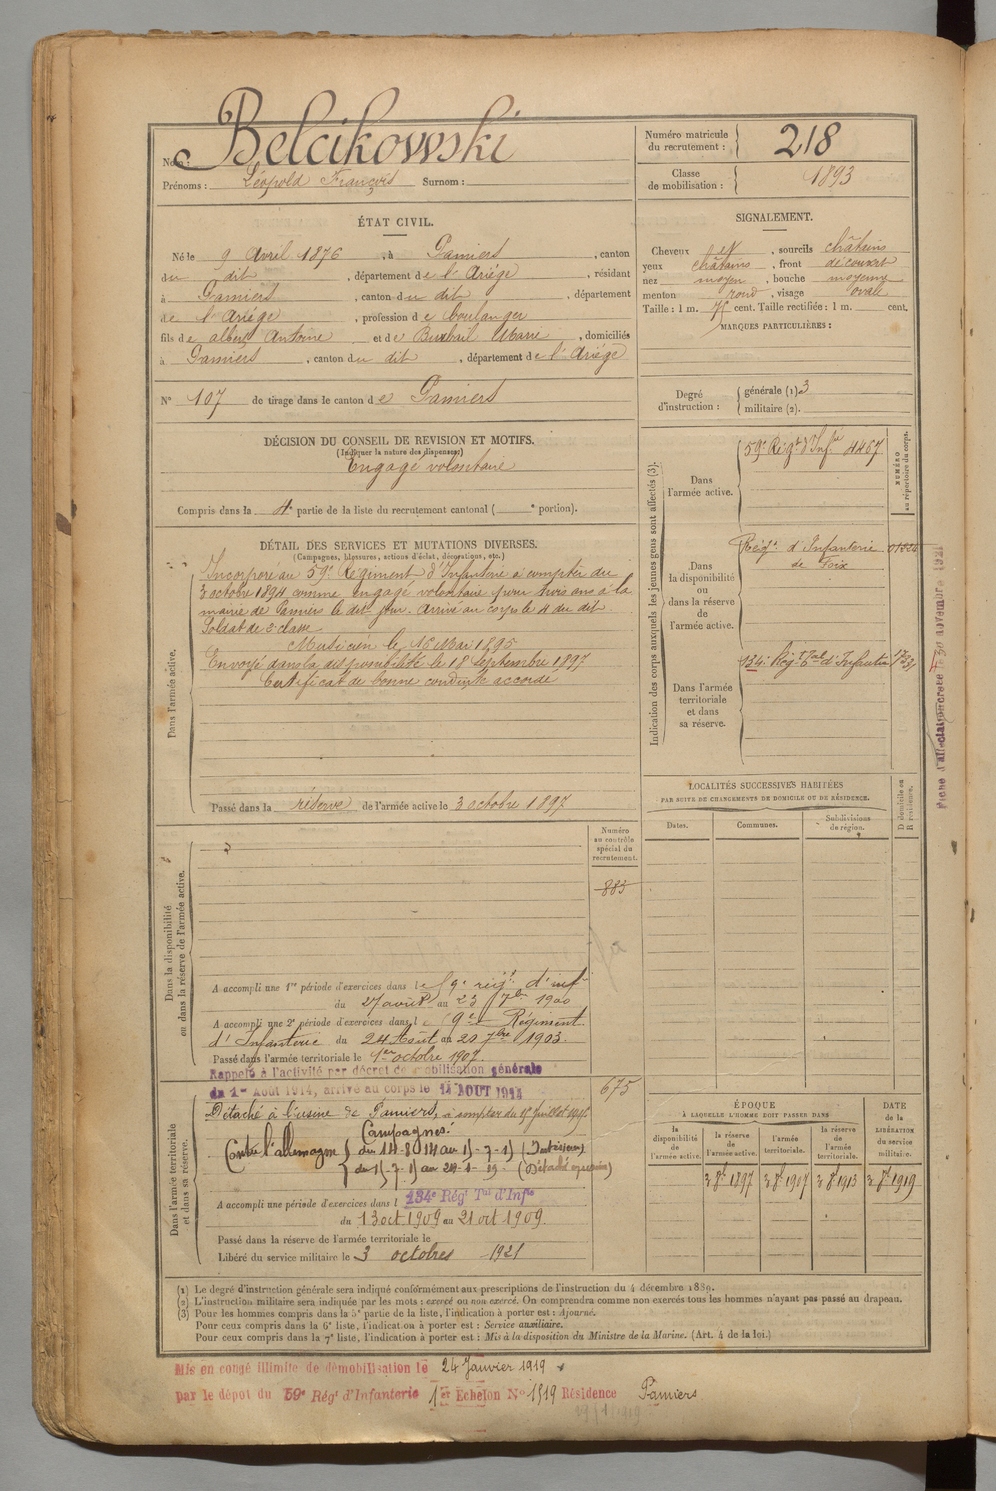 Nom : Belcikowski
Prénoms : Léopold François Surnom :
Numéro matricule du recrutement : 218
Classe de mobilisation : 1893
ÉTAT CIVIL.
Né le 9 Avril 1876, à Pamiers, canton
du dit, département de l'Ariège, résidant
à Pamiers, canton du dit, département
de l'Ariège, profession de boulanger
fils de albert Antoine et de Marie, domiciliés
à Pamiers, canton du dit, département de l'Ariège
N° 107 de tirage dans le canton de Pamiers
SIGNALEMENT.
Cheveux et, sourcils châtains
yeux châtains, front découvert
nez moyen, bouche moyenne
menton rond, visage ovale
Taille : 1 m. 75 cent. Taille rectifiée : 1 m. cent.
MARQUES PARTICULIÈRES :
Degré d'instruction : générale (1) 3
militaire (2).
DÉCISION DU CONSEIL DE REVISION ET MOTIFS.
(Indiquer la nature des dispenses)
Engagé volontaire
Compris dans la 4e partie de la liste du recrutement cantonal ( e portion).
DÉTAIL DES SERVICES ET MUTATIONS DIVERSES.
(Campagnes, blessures, actions d'éclat, décorations, etc.)
Dans l'armée active.
Incorporé au 59e Régiment d'Infanterie à compter du
3 octobre 1894 comme engagé volontaire pour trois ans à la
mairie de Pamiers le dit jour. Arrivé au corps le 4 du dit.
Soldat de 2e classe
Musicien le 16 Mai 1895
Envoyé dans la disponibilité le 18 Septembre 1897
Certificat de bonne conduite accordé
Passé dans la réserve de l'armée active le 3 octobre 1897
Indication des corps auxquels les jeunes gens sont affectés (3).
NUMÉRO au répertoire du corps.
Dans l'armée active.
59e Régt d'Infie 4467
Dans la disponibilité ou dans la réserve de l'armée active.
Régt d'Infanterie
de Foix
Dans l'armée territoriale et dans sa réserve.
134e Régt Tal d'Infanterie
30 novembre 1921
LOCALITÉS SUCCESSIVES HABITÉES
PAR SUITE DE CHANGEMENTS DE DOMICILE OU DE RÉSIDENCE.
Dates. Communes. Subdivisions de région. D domicile ou R résidence.
Numéro au contrôle spécial du recrutement.
883
Dans la disponibilité ou dans la réserve de l'armée active.
A accompli une 1re période d'exercices dans le 59e régt d'inf
du 27 août au 23 7bre 1900
A accompli une 2e période d'exercices dans le 59e Régiment
d'Infanterie du 24 Août au 20 7bre 1903.
Passé dans l'armée territoriale le 1er octobre 1907.
Rappelé à l'activité par décret de mobilisation générale
du 1er Août 1914, arrivé au corps le 14 AOUT 1914
675
Dans l'armée territoriale et dans sa réserve.
Détaché à l'usine de Pamiers, à compter du 15 Juillet 1915
Campagnes:
Contre l'allemagne du 14-8-1914 au 15-7-15 (Intérieur)
du 15-7-15 au 24-1-19 (Détaché)
A accompli une période d'exercices dans l 134e Régt Tal d'Infie
du 13 oct 1909 au 21 oct 1909.
Passé dans la réserve de l'armée territoriale le
Libéré du service militaire le 3 octobre 1921
ÉPOQUE
A LAQUELLE L'HOMME DOIT PASSER DANS
la disponibilité de l'armée active.
la réserve de l'armée active.
l'armée territoriale.
la réserve de l'armée territoriale.
DATE de la LIBÉRATION du service militaire.
3 8e 1897 3 8e 1907 3 8e 1913 3 8e 1919
(1) Le degré d'instruction générale sera indiqué conformément aux prescriptions de l'instruction du 4 décembre 1889.
(2) L'instruction militaire sera indiquée par les mots : exercé ou non exercé. On comprendra comme non exercés tous les hommes n'ayant pas passé au drapeau.
(3) Pour les hommes compris dans la 5e partie de la liste, l'indication à porter est : Ajourné.
Pour ceux compris dans la 6e liste, l'indication à porter est : Service auxiliaire.
Pour ceux compris dans la 7e liste, l'indication à porter est : Mis à la disposition du Ministre de la Marine. (Art. 4 de la loi.)
Mis en congé illimité de démobilisation le 24 Janvier 1919
par le dépôt du 59e Régt d'Infanterie 1er Echelon N° 1519 Résidence Pamiers